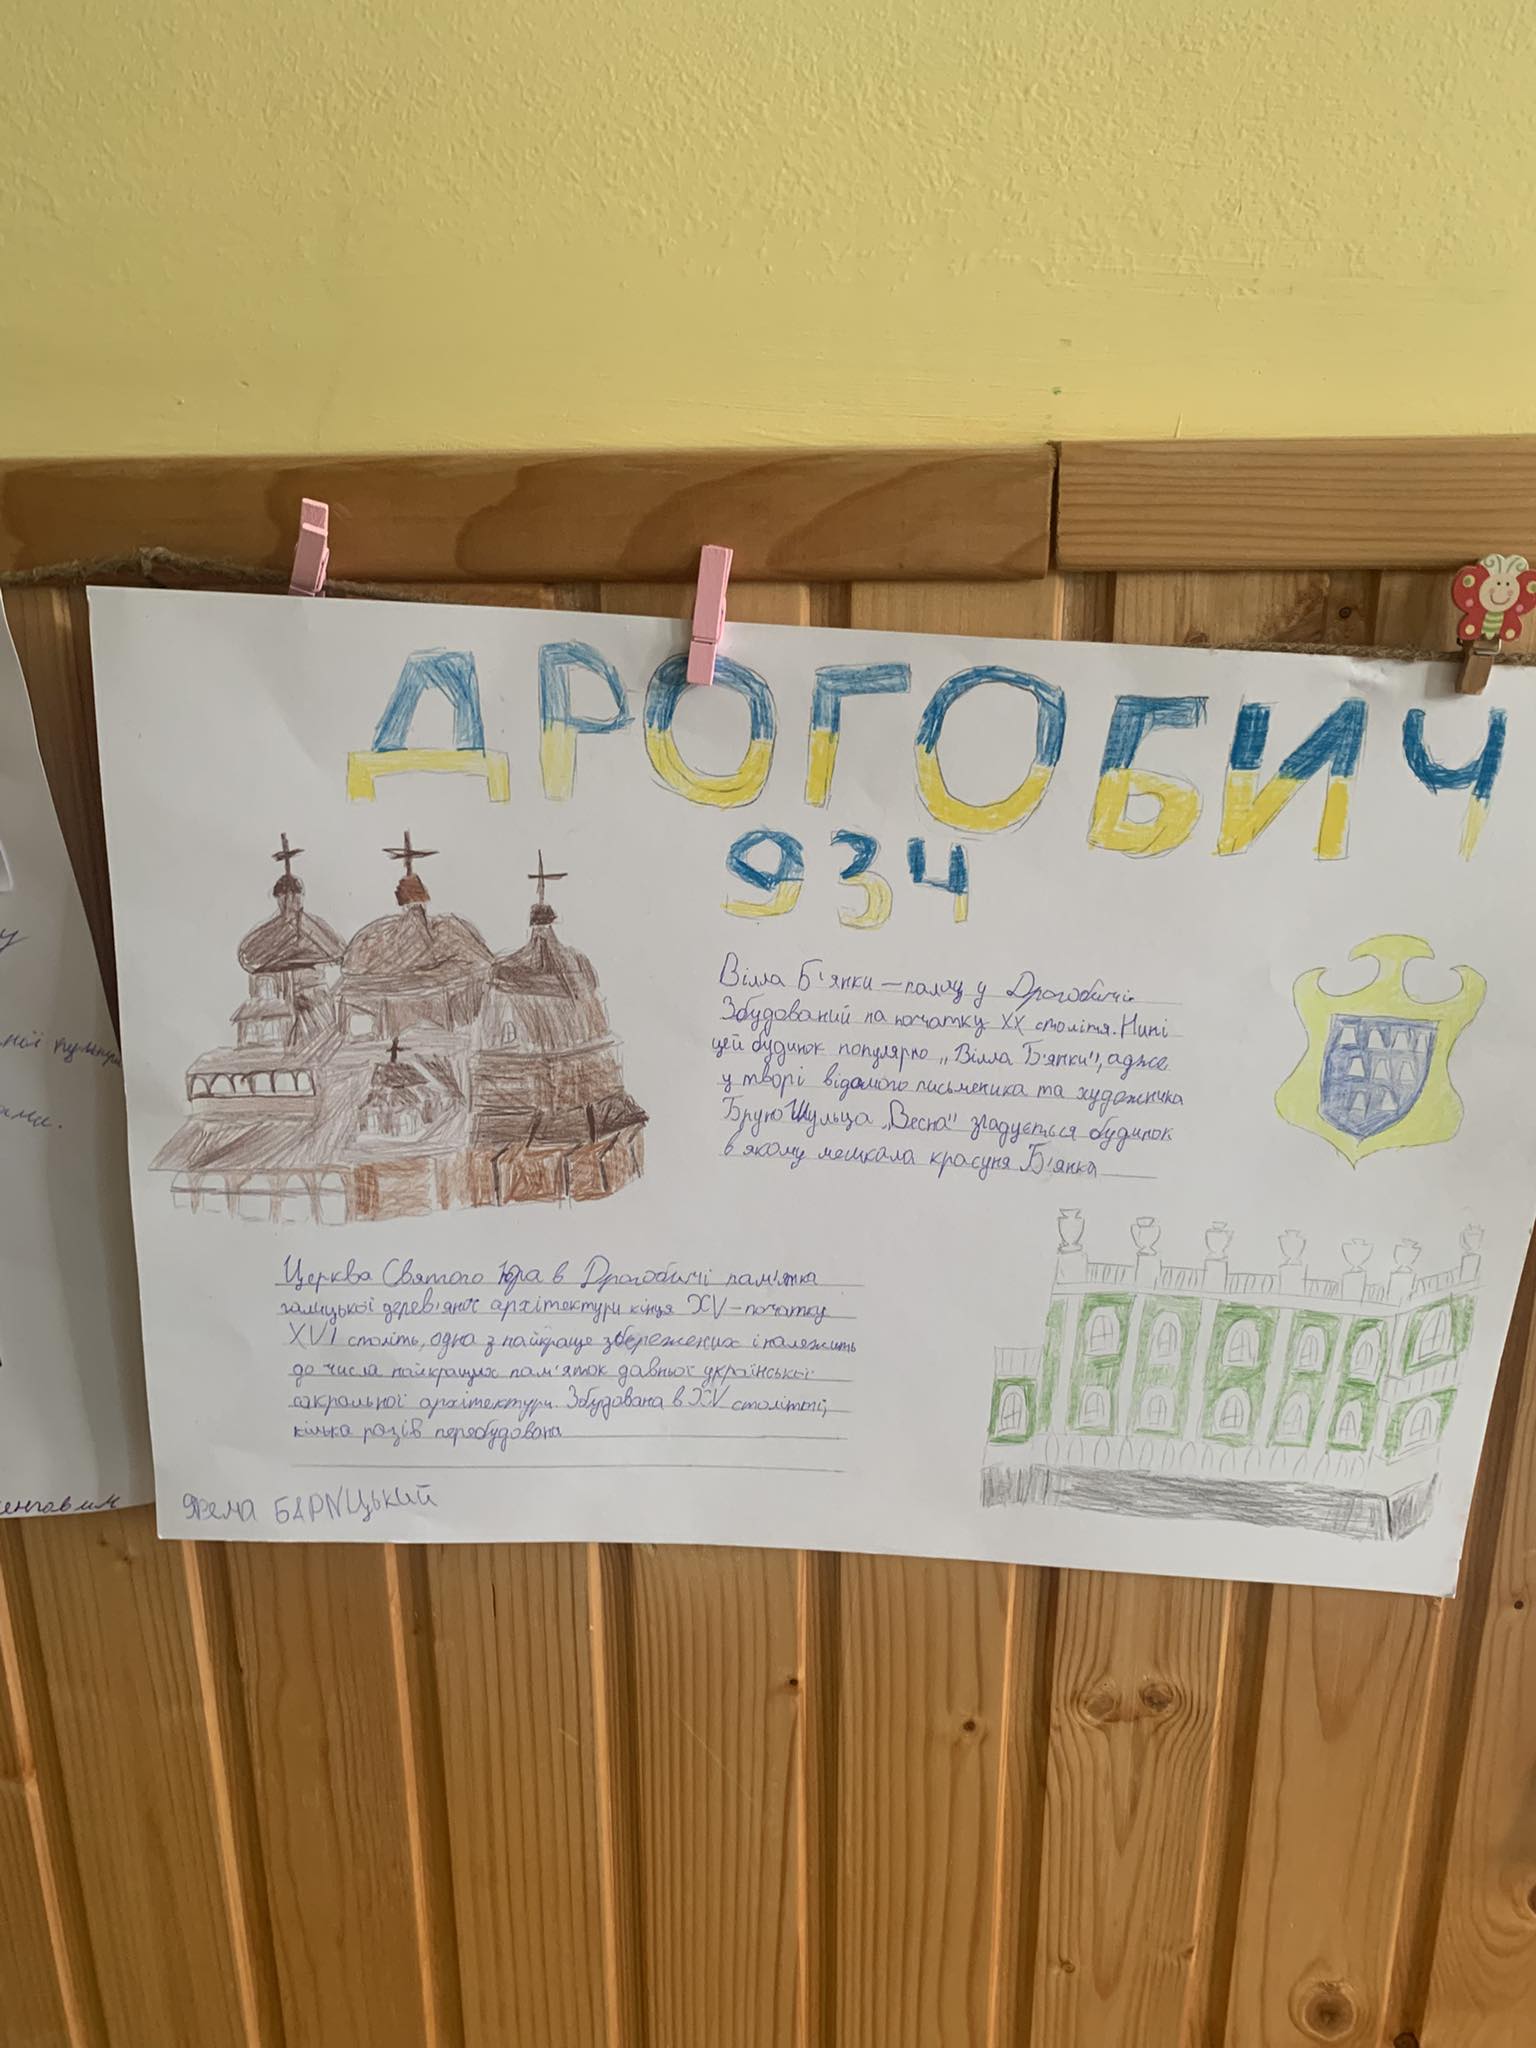 ДРОГОБИЧ
934
Вілла Б'янки — палац у Дрогобичі.
Збудований на початку XX століття. Нині
цей будинок популярно „Вілла Б'янки", адже
у творі відомого письменника та художника
Бруно Шульца „Весна" згадується будинок
в якому мешкала красуня Б'янка
Церква Святого Юра в Дрогобичі пам'ятка
галицької дерев'яної архітектури кінця XV – початку
XVI століть, одна з найкраще збережених і належить
до числа найкращих пам'яток давньої української
сакральної архітектури. Збудована в XV столітті,
кілька разів перебудована
Ярема БАРИЦЬКИЙ